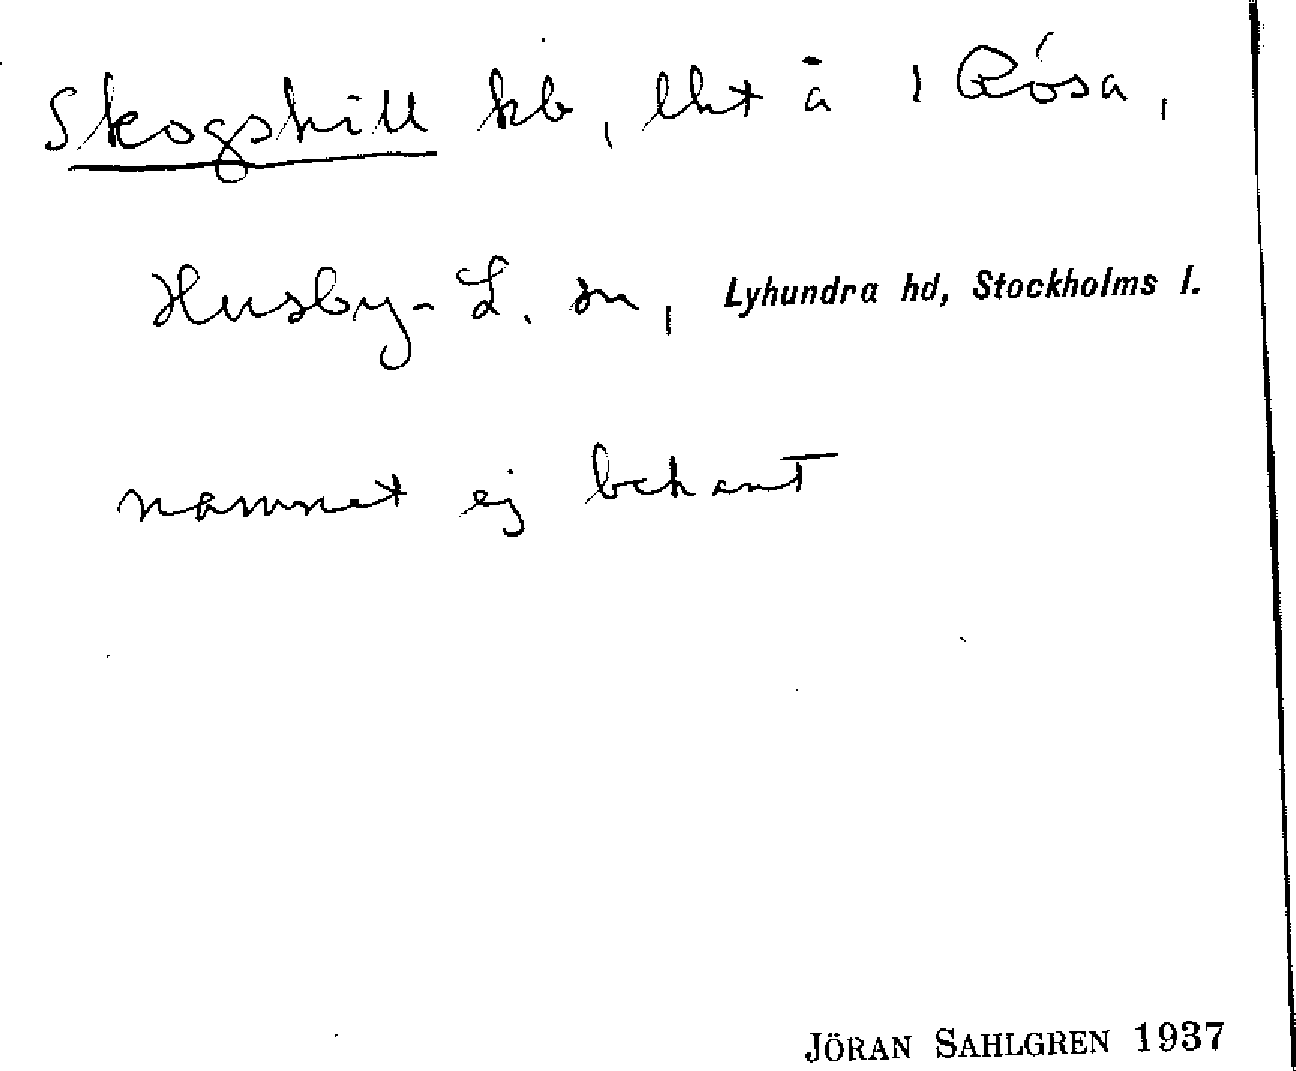 Skogshill kb, lht å 1 Rösa,
Husby-L. sn, Lyhundra hd, Stockholms l.
namnet ej bekant
JÖRAN SAHLGREN 1937